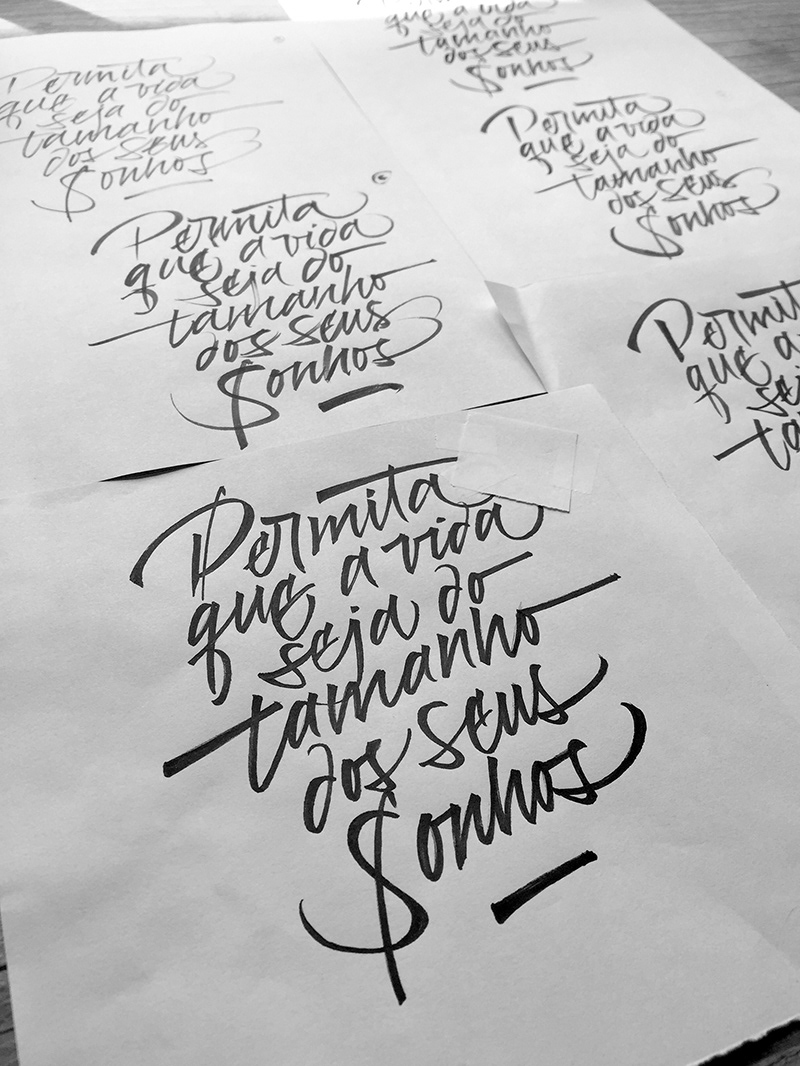 Permita
que a vida
seja do
tamanho
dos seus
Sonhos
Permita
que a vida
seja do
tamanho
dos seus
Sonhos
que a vida
seja do
tamanho
dos seus
Sonhos
Permita
que a vida
seja do
tamanho
dos seus
Sonhos
Permita
que a vida
seja do
tamanho
dos seus
Sonhos